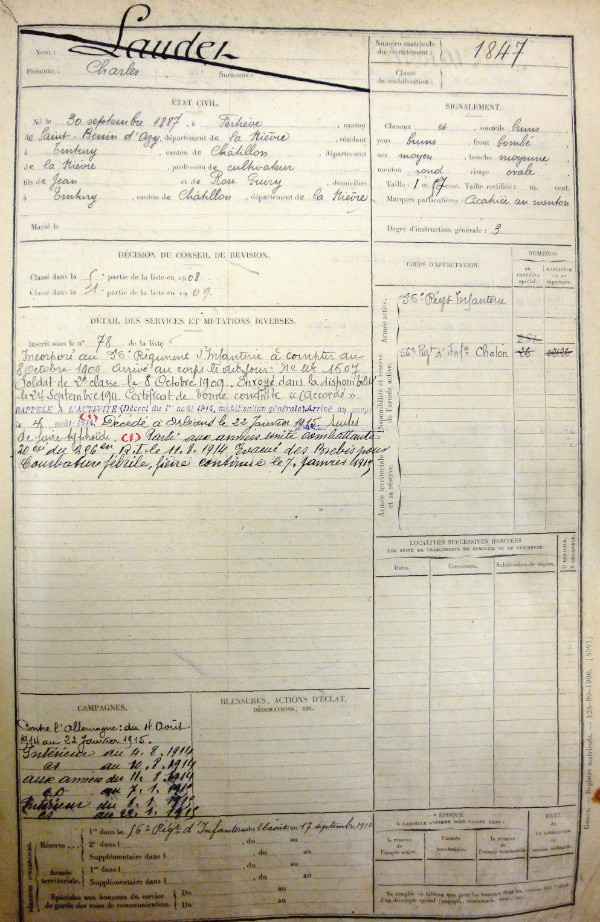 Nom : Laudet
Prénoms : Charles Surnoms :
Numéro matricule du recrutement : 1847
Classe de mobilisation :
ÉTAT CIVIL.
Né le 30 septembre 1887, à Fertrève, canton
de Saint-Benin d'Azy, département de la Nièvre, résidant
à Tintury, canton de Châtillon, département
de la Nièvre, profession de cultivateur
fils de Jean et de Rose, domiciliés
à Tintury, canton de Châtillon, département de la Nièvre
Marié le
SIGNALEMENT.
Cheveux et sourcils bruns
yeux bruns front bombé
nez moyen, bouche moyenne
menton rond visage ovale
Taille : 1 m. 67 cent. Taille rectifiée : m. cent.
Marques particulières : Cicatrice au menton
Degré d'instruction générale : 3
DÉCISION DU CONSEIL DE REVISION.
Classé dans la 5e partie de la liste en 1908
Classé dans la 1e partie de la liste en 1909.
DÉTAIL DES SERVICES ET MUTATIONS DIVERSES.
Inscrit sous le n° 78 de la liste
Incorporé au Régiment d'Infanterie à compter du
8 Octobre 1909. Arrivé au corps le dit jour. 1607
Soldat de 2e classe le 8 Octobre 1909. Envoyé dans la disponibilité
le 24 Septembre 1911. Certificat de bonne conduite « Accordé ».
RAPPELÉ A L'ACTIVITÉ (Décret du 1er août 1914, mobilisation générale) Arrivé au corps
le 4 août 1914. (1) Décédé à Orléans le 22 Janvier 1915. Suites
de fièvre typhoïde. (1) Parti aux armées (unité combattante
du 296e R.I. le 11.8.1914 Evacué des Brebis pour
Courbature fébrile, fièvre continue le 7. Janvier 1915
CORPS D'AFFECTATION.
NUMÉROS
au contrôle spécial.
matricule ou au répertoire.
Armée active.
Régt Infanterie
Disponibilité et réserve de l'armée active.
56e Régt d'Infie Chalon
Armée territoriale et sa réserve.
LOCALITÉS SUCCESSIVES HABITÉES
PAR SUITE DE CHANGEMENTS DE DOMICILE OU DE RÉSIDENCE.
Dates. Communes. Subdivisions de région. D domicile. R résidence.
CAMPAGNES.
Contre l'Allemagne : du 4 Août
1914 au 22 Janvier 1915.
Intérieur du 4.8.1914
au 10.8.1914
aux armées du 11.8.1914
au 7.1.1915
Intérieur du 8.1.1915
au 22.1.1915
BLESSURES, ACTIONS D'ÉCLAT,
DÉCORATIONS, ETC.
Réserve
1er dans le 56e Régt d'Infanterie du 26 août au 17 septembre 1912
2e dans l , du au
Supplémentaire dans l , du au
Armée territoriale.
1er dans l , du au
Supplémentaire dans l , du au
Spéciaux aux hommes du service
de garde des voies de communication.
Du au
Du au
ÉPOQUE
À LAQUELLE L'HOMME DOIT PASSER DANS :
la réserve de l'armée active.
l'armée territoriale.
la réserve de l'armée territoriale
DATE
DE LA LIBÉRATION
du service militaire.